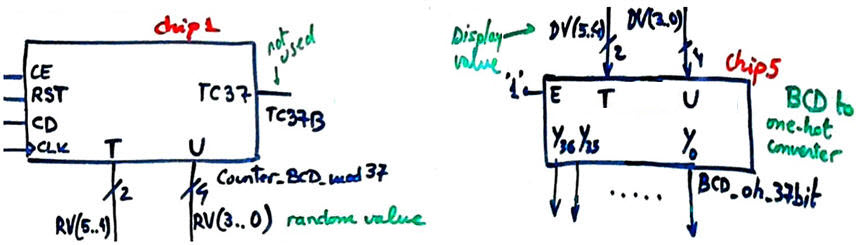 chip1
not used
CE
RST
CD
CLK
TC37
TC37B
T
U
2
4
Counter_BCD_mod37
RV(5..4)
RV(3..0)
random value
Display value
DV(5..4)
DV(3..0)
2
4
chip5
'1'
E
T
U
BCD to one-hot converter
Y36
Y35
Y0
.....
BCD_oh_37bit